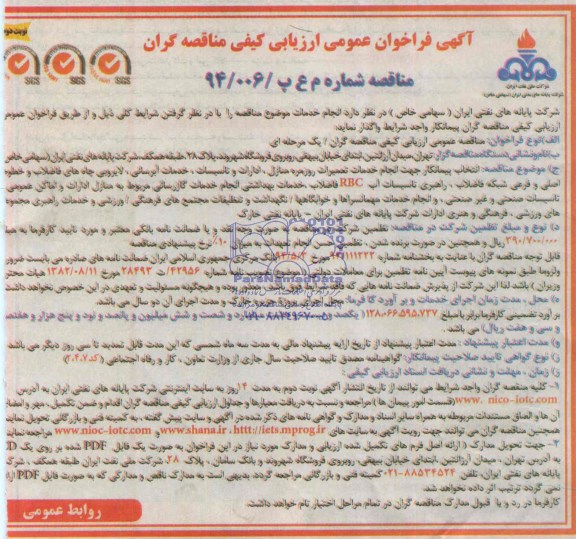 نوبت دوم
آگهی فراخوان عمومی ارزیابی کیفی مناقصه گران
مناقصه شماره م ع پ /۹۴/۰۰۶
شرکت پایانه های نفتی ایران ( سهامی خاص ) در نظر دارد انجام خدمات موضوع مناقصه را با در نظر گرفتن شرایط کلی ذیل و از طریق فراخوان عمومی
ارزیابی کیفی مناقصه گران بپیمانکار واجد شرایط واگذار نماید:
الف)نوع فراخوان: مناقصه عمومی ارزیابی کیفی مناقصه گران / یک مرحله ای
ب)نام ونشانی دستگاه مناقصه گزار: تهران، میدان آرژانتین، ابتدای خیابان بیهقی، روبروی فروشگاه شهروند، پلاک ۲۸، طبقه همکف، شرکت پایانه های نفتی ایران(سهامی خاص)
ج) موضوع مناقصه: انتخاب پیمانکار جهت انجام خدمات تعمیرات روزمره منازل ، ادارات و تاسیسات ، خدمات آبرسانی ، لایروبی چاه های فاضلاب و خطوط
اصلی و فرعی شبکه فاضلاب ، راهبری تاسیسات آب RBC فاضلاب، خدمات بهداشتی انجام خدمات گازرسانی مربوط به منازل ادارات و اماکن عمومی
تاسیسات صنعتی و غیر صنعتی ، و انجام خدمات مهمانسراها و خوابگاهها / نگهداشت و تنظیفات مجتمع های فرهنگی / ورزشی و خدمات راهبری مجموعه
های ورزشی ، فرهنگی و هنری ادارات شرکت پایانه های نفتی ایران - پایانه نفتی خارک
د) نوع و مبلغ تظمین شرکت در مناقصه: تضمین شرکت در مناقصه به صورت وجه نقد و یا ضمانت نامه بانکی معتبر و مورد تایید کارفرما به مبلغ
۳۹۰/۷۰۰/۰۰۰ ریال و همچنین در صورت برنده شدن ، تظمین انجام تعهدات به میزان ۱۰٪ نرخ پیشنهادی مناقصه
قابل توجه مناقصه گران با عنایت به بخشنامه شماره مورخ بانک مرکزی جمهوری اسلامی ایران ضمانت نامه های صادره می بایست ضرورتا
ولزوما طبق نمونه های پیوست آیین نامه تظمین برای معاملات دولتی ( موضوع تصویب نامه شماره ۴۲۹۵۶/ت ۲۸۴۹۳ مورخ ۱۳۸۲/۰۸/۱۱ هیات محترم
وزیران ) باشد، لذا این شرکت از پذیرش ضمانت نامه هایی که معذور بوده و هیچگونه مسئولیت و تعهدی در این خصوص نخواهد داشت.
ه) محل ، مدت زمان اجرای خدمات و بر آورد کارفرما: محل اجرای پروژه، جزیره خارگ و مدت اجرای آن دو سال می باشد.
بر آورد تضمینی کارفرما برابر با مبلغ ۱۲۸،۰۶۶،۵۹۵،۷۳۷ ( یکصد و شصت و شش میلیون و پانصد و نود و پنج هزار و هفتصد
و سی و هفت ریال) می باشد.
و) مدت اعتبار پیشنهاد : مدت اعتبار پیشنهاد از تاریخ ارایه پیشنهاد مالی به مدت سه ماه شمسی که این مدت قابل تمدید تا سی روز دیگر می باشد.
ز) نوع گواهی تایید صلاحیت پیمانکار: گواهینامه مصدق تایید صلاحیت سال جاری از وزارت تعاون ، کار و رفاه اجتماعی (کد۷،۴،۲)
ز) زمان ، مهلت و نشانی دریافت اسناد ارزیابی کیفی :
۱- کلیه مناقصه گران واجد شرایط می توانند از تاریخ انتشار آگهی نوبت دوم به مدت ۱۴ روز به سایت اینترنتی شرکت پایانه های نفتی ایران به آدرس
www. nico-iotc.com (قسمت امور پیمان ها) مراجعه و نسبت به دریافت معیارها و جداول ارزیابی کیفی مناقصه گران اقدام و ضمن تکمیل، مهر و امضاء
آن ها و الصاق مستندات مربوطه به همراه سایر اسناد و مدارک و گواهی نامه های ذکر شده در آگهی و سایت پیش گفته ، به کمیته فنی و بازرگانی تحویل نمایند
همچنین مناقصه گران می توانند جهت رویت آگهی به سایت های www.shana.ir ،http://iets.mprog.ir و www.nioc-iotc.com مراجعه نمایند
۲- جهت تحویل مدارک ( ارائه اصل فرم های تکمیل شده ارزیابی و مدارک مورد نیاز در این فراخوان به صورت یک فایل PDF شده بر روی یک CD
به آدرس تهران ، میدان آرژانتین، ابتدای خیابان بیهقی، روبروی فروشگاه شهروند و بانک سامان ، پلاک ۲۸، شرکت ملی نفت ایران طبقه همکف ، شرکت
پایانه های نفتی ایران، تلفن ۸۸۵۳۴۵۲۴-۰۲۱ کمیته فنی و بازرگانی مراجعه گردد. بدیهی است به مدارک ناقص و مدارکی که به صورت فایل PDF ارائه
نمی گردد ترتیب اثر داده نخواهد شد.
کارفرما در رد و یا قبول مدارک مناقصه گران در تمام مراحل اختیار تام خواهد داشت.
روابط عمومی